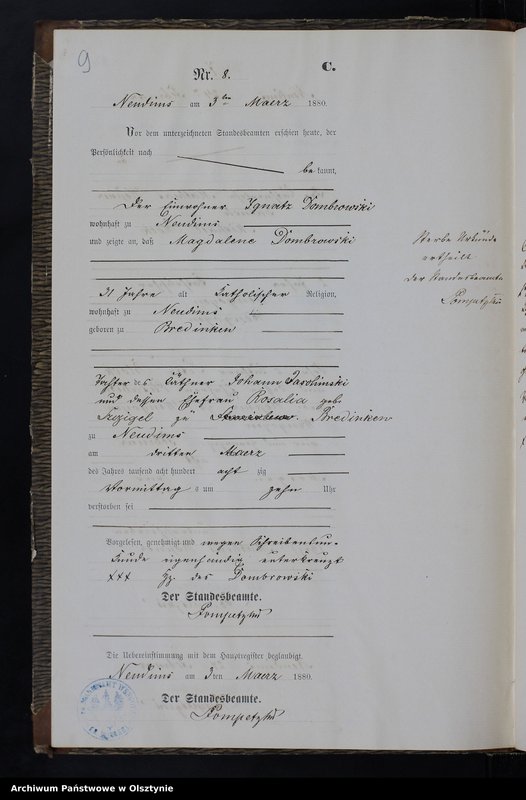 9
C.
Nr. 8.
Neudims am 3ten Maerz 1880.
Vor dem unterzeichneten Standesbeamten erschien heute, der
Persönlichkeit nach
bekannt,
Der Einwohner Ignatz Dombrowski
wohnhaft zu Neudims
und zeigte an, daß Magdalene Dombrowski
Sterbe Urkunde
ertheilt
Der Standesbeamte
31 Jahre alt Katholischer Religion,
wohnhaft zu Neudims
geboren zu Bredinken
Tochter des Käthner Johann
und dessen Ehefrau Rosalia geb
zu Bredinken
zu Neudims
am dritten Maerz
des Jahres tausend acht hundert acht zig
Vormittag s um zehn Uhr
verstorben sei
Vorgelesen, genehmigt und wegen Schreibensun-
kunde eigenhändig unterkreuzt
+++ Hz. des Dombrowski
Der Standesbeamte.
Die Uebereinstimmung mit dem Hauptregister beglaubigt.
Neudims am 3ten Maerz 1880.
Der Standesbeamte.
Archiwum Państwowe w Olsztynie